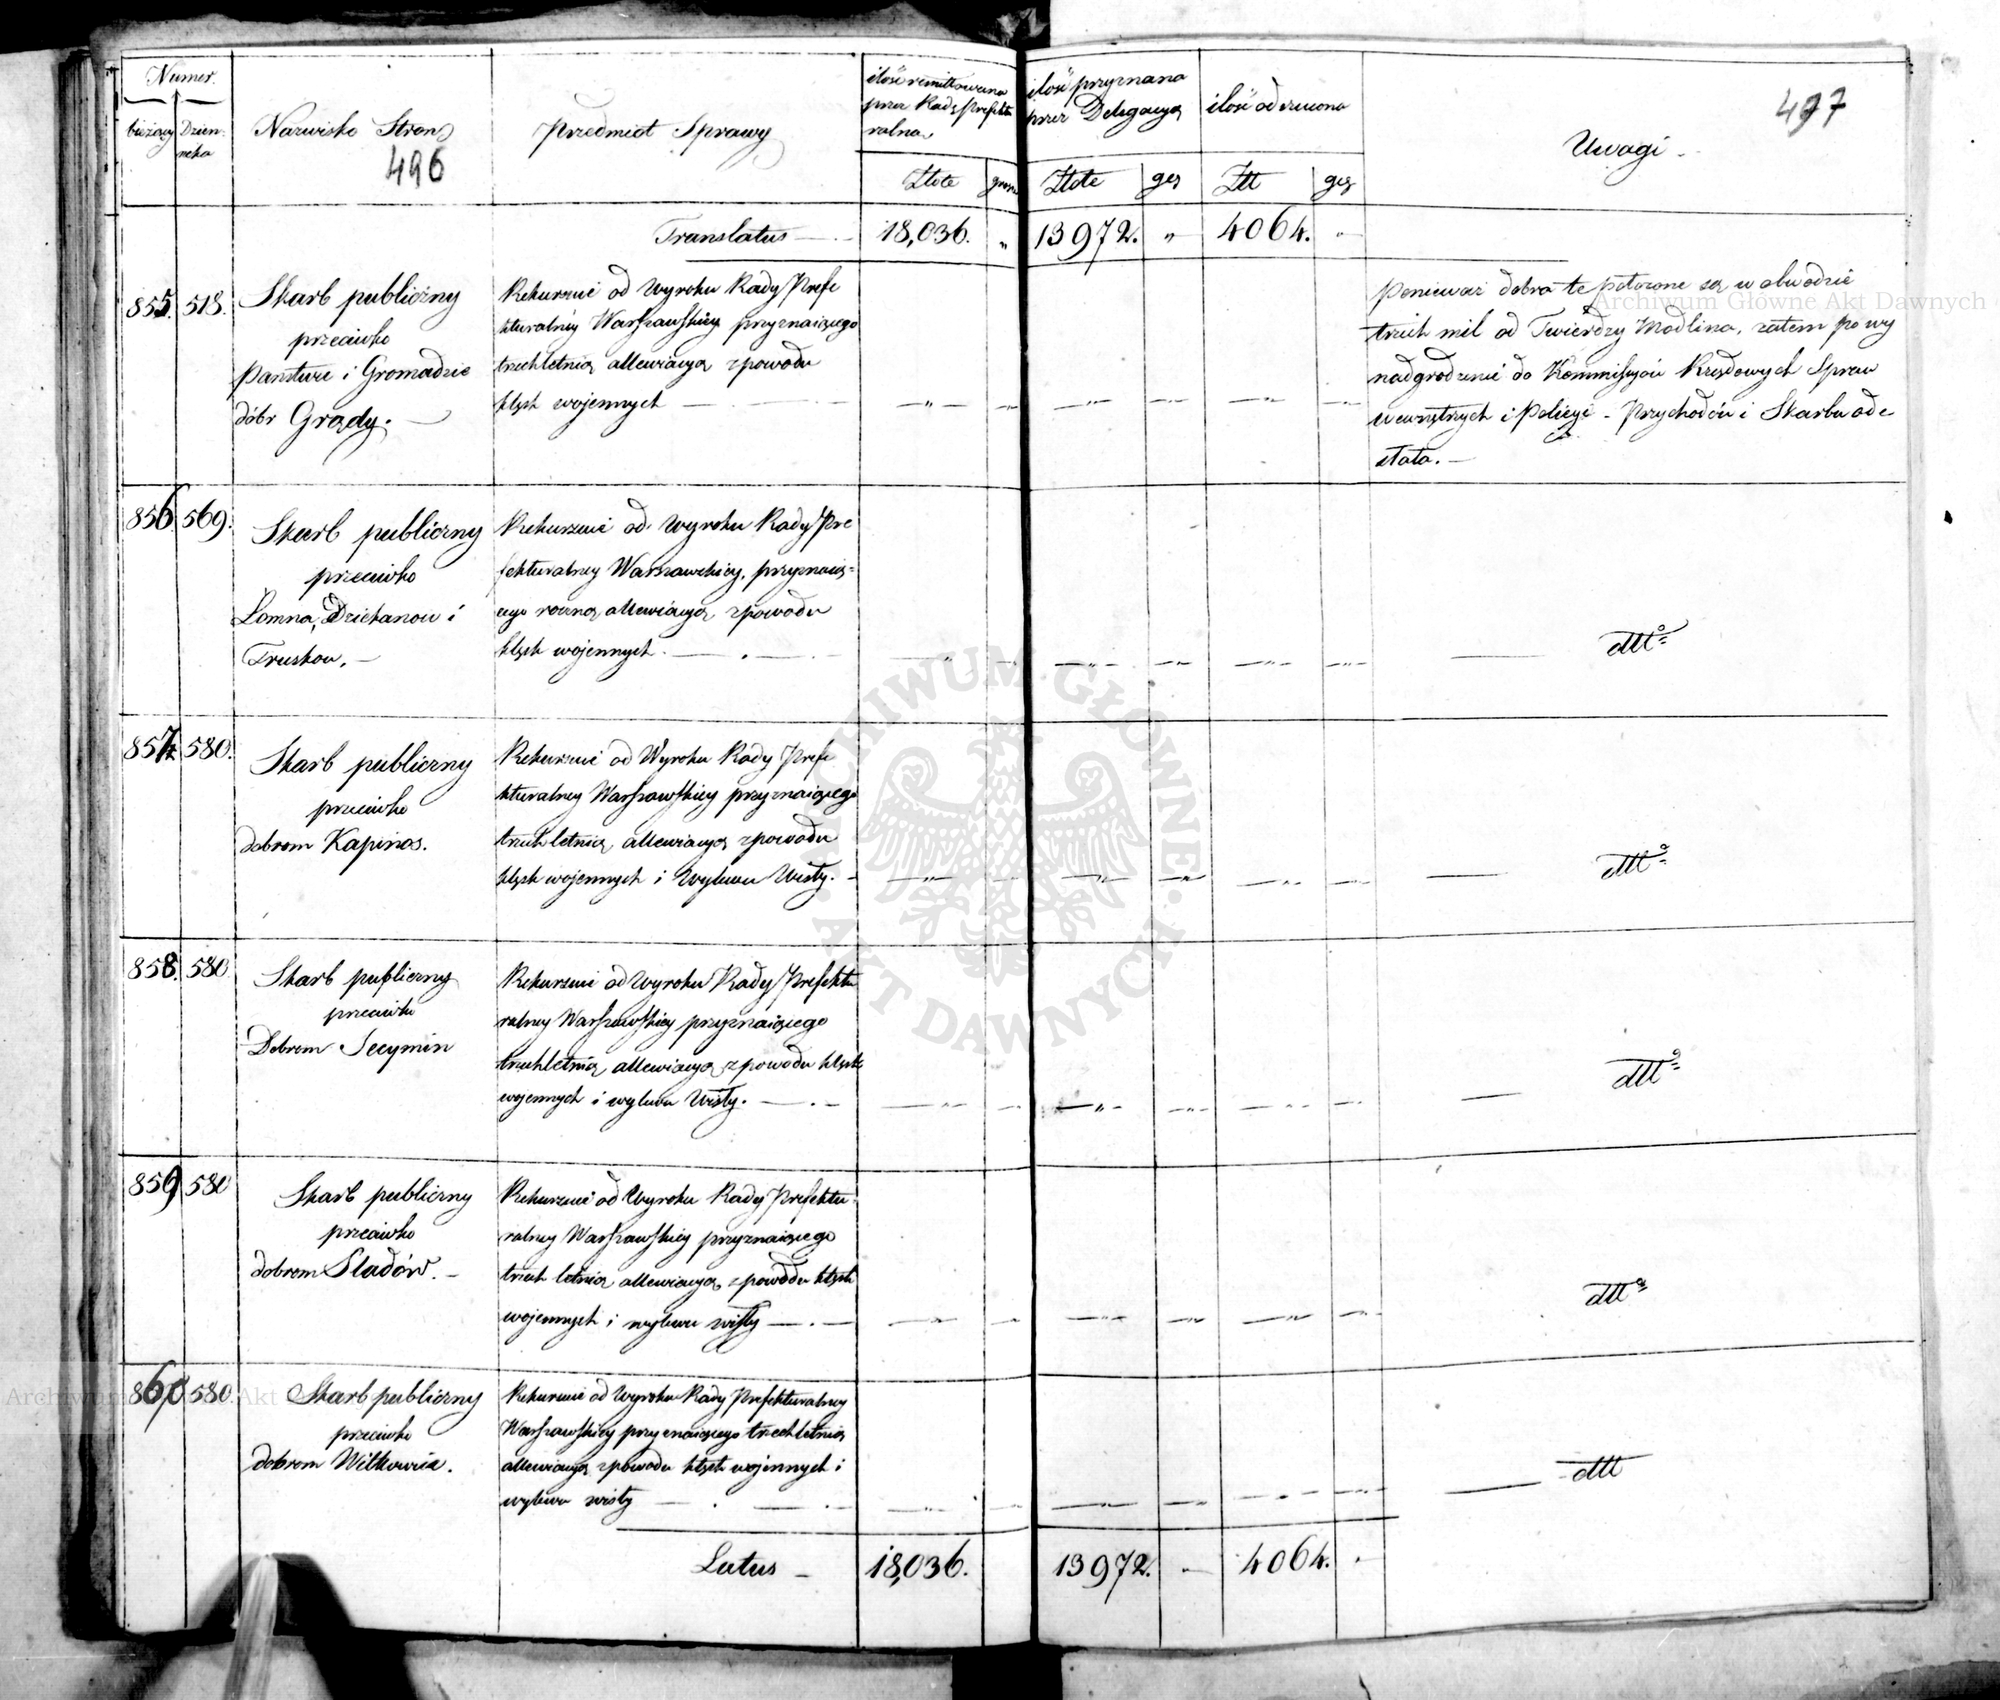 Numer.
bieżący
Dzien-
nika
Nazwisko Stron
496
Przedmiot Sprawy
ilość remittowana
przez Radę Prefektu
ralną
Złote
grosze
ilość przyznana
przez Delegacyą
Złote
gr
ilość odrzucona
Złł
gr
Uwagi
497
Translatus
18,036. "
13972. "
4064. "
855. 518.
Skarb publiczny
przeciwko
Państwu i Gromadzie
dóbr Grądy.
Rekurzuie od Wyroku Rady Prefe
kturalnéy Warszawskiey przyznaiącego
trzechletnią allewiacyą z powodu
klęsk wojennych
Ponieważ dobra te położone są w obwodzie
trzech mil od Twierdzy Modlina, zatem po wy
nadgrodzenie do Kommissyów Rządowych Spraw
wewnętrznych i Policyi - Przychodów i Skarbu ode
słała.
856. 569.
Skarb publiczny
przeciwko
Łomna, Dziekanow i
Truskow.
Rekurzuie od Wyroku Rady Pre
fekturalney Warszawskiey, przyznaią=
cego roczną allewiacyą z powodu
klęsk wojennych.
dtto
857. 580.
Skarb publiczny
przeciwko
dobrom Kapinos.
Rekurzuie od Wyroku Rady Prefe
kturalney Warszawskiey przyznaiącego
trzechletnią allewiacyą z powodu
klęsk wojennych i Wylewu Wisły.
dtto
858. 580.
Skarb publiczny
przeciwko
Dobrom Secymin
Rekurzuie od Wyroku Rady Prefektu
ralney Warszawskiey przyznaiącego
trzechletnią allewiacyą z powodu klęsk
wojennych i wylewu Wisły.
dtto
859 580
Skarb publiczny
przeciwko
dobrom Sladów.
Rekurzuie od Wyroku Rady Prefektu-
ralney Warszawskiey przyznaiącego
trzech letnią allewiacyą z powodu klęsk
wojennych i wylewu wisły
dtto
860 580.
Skarb publiczny
przeciwko
dobrom Wilkowia.
Rekurzuie od Wyroku Rady Prefekturalney
Warszawskiey przyznaiącego trzechletnią
allewiacyą z powodu klęsk wojennych i
wylewu wisły
dtt
Latus
18,036.
13972.
4064.
ARCHIWUM GŁÓWNE AKT DAWNYCH
Archiwum Główne Akt Dawnych